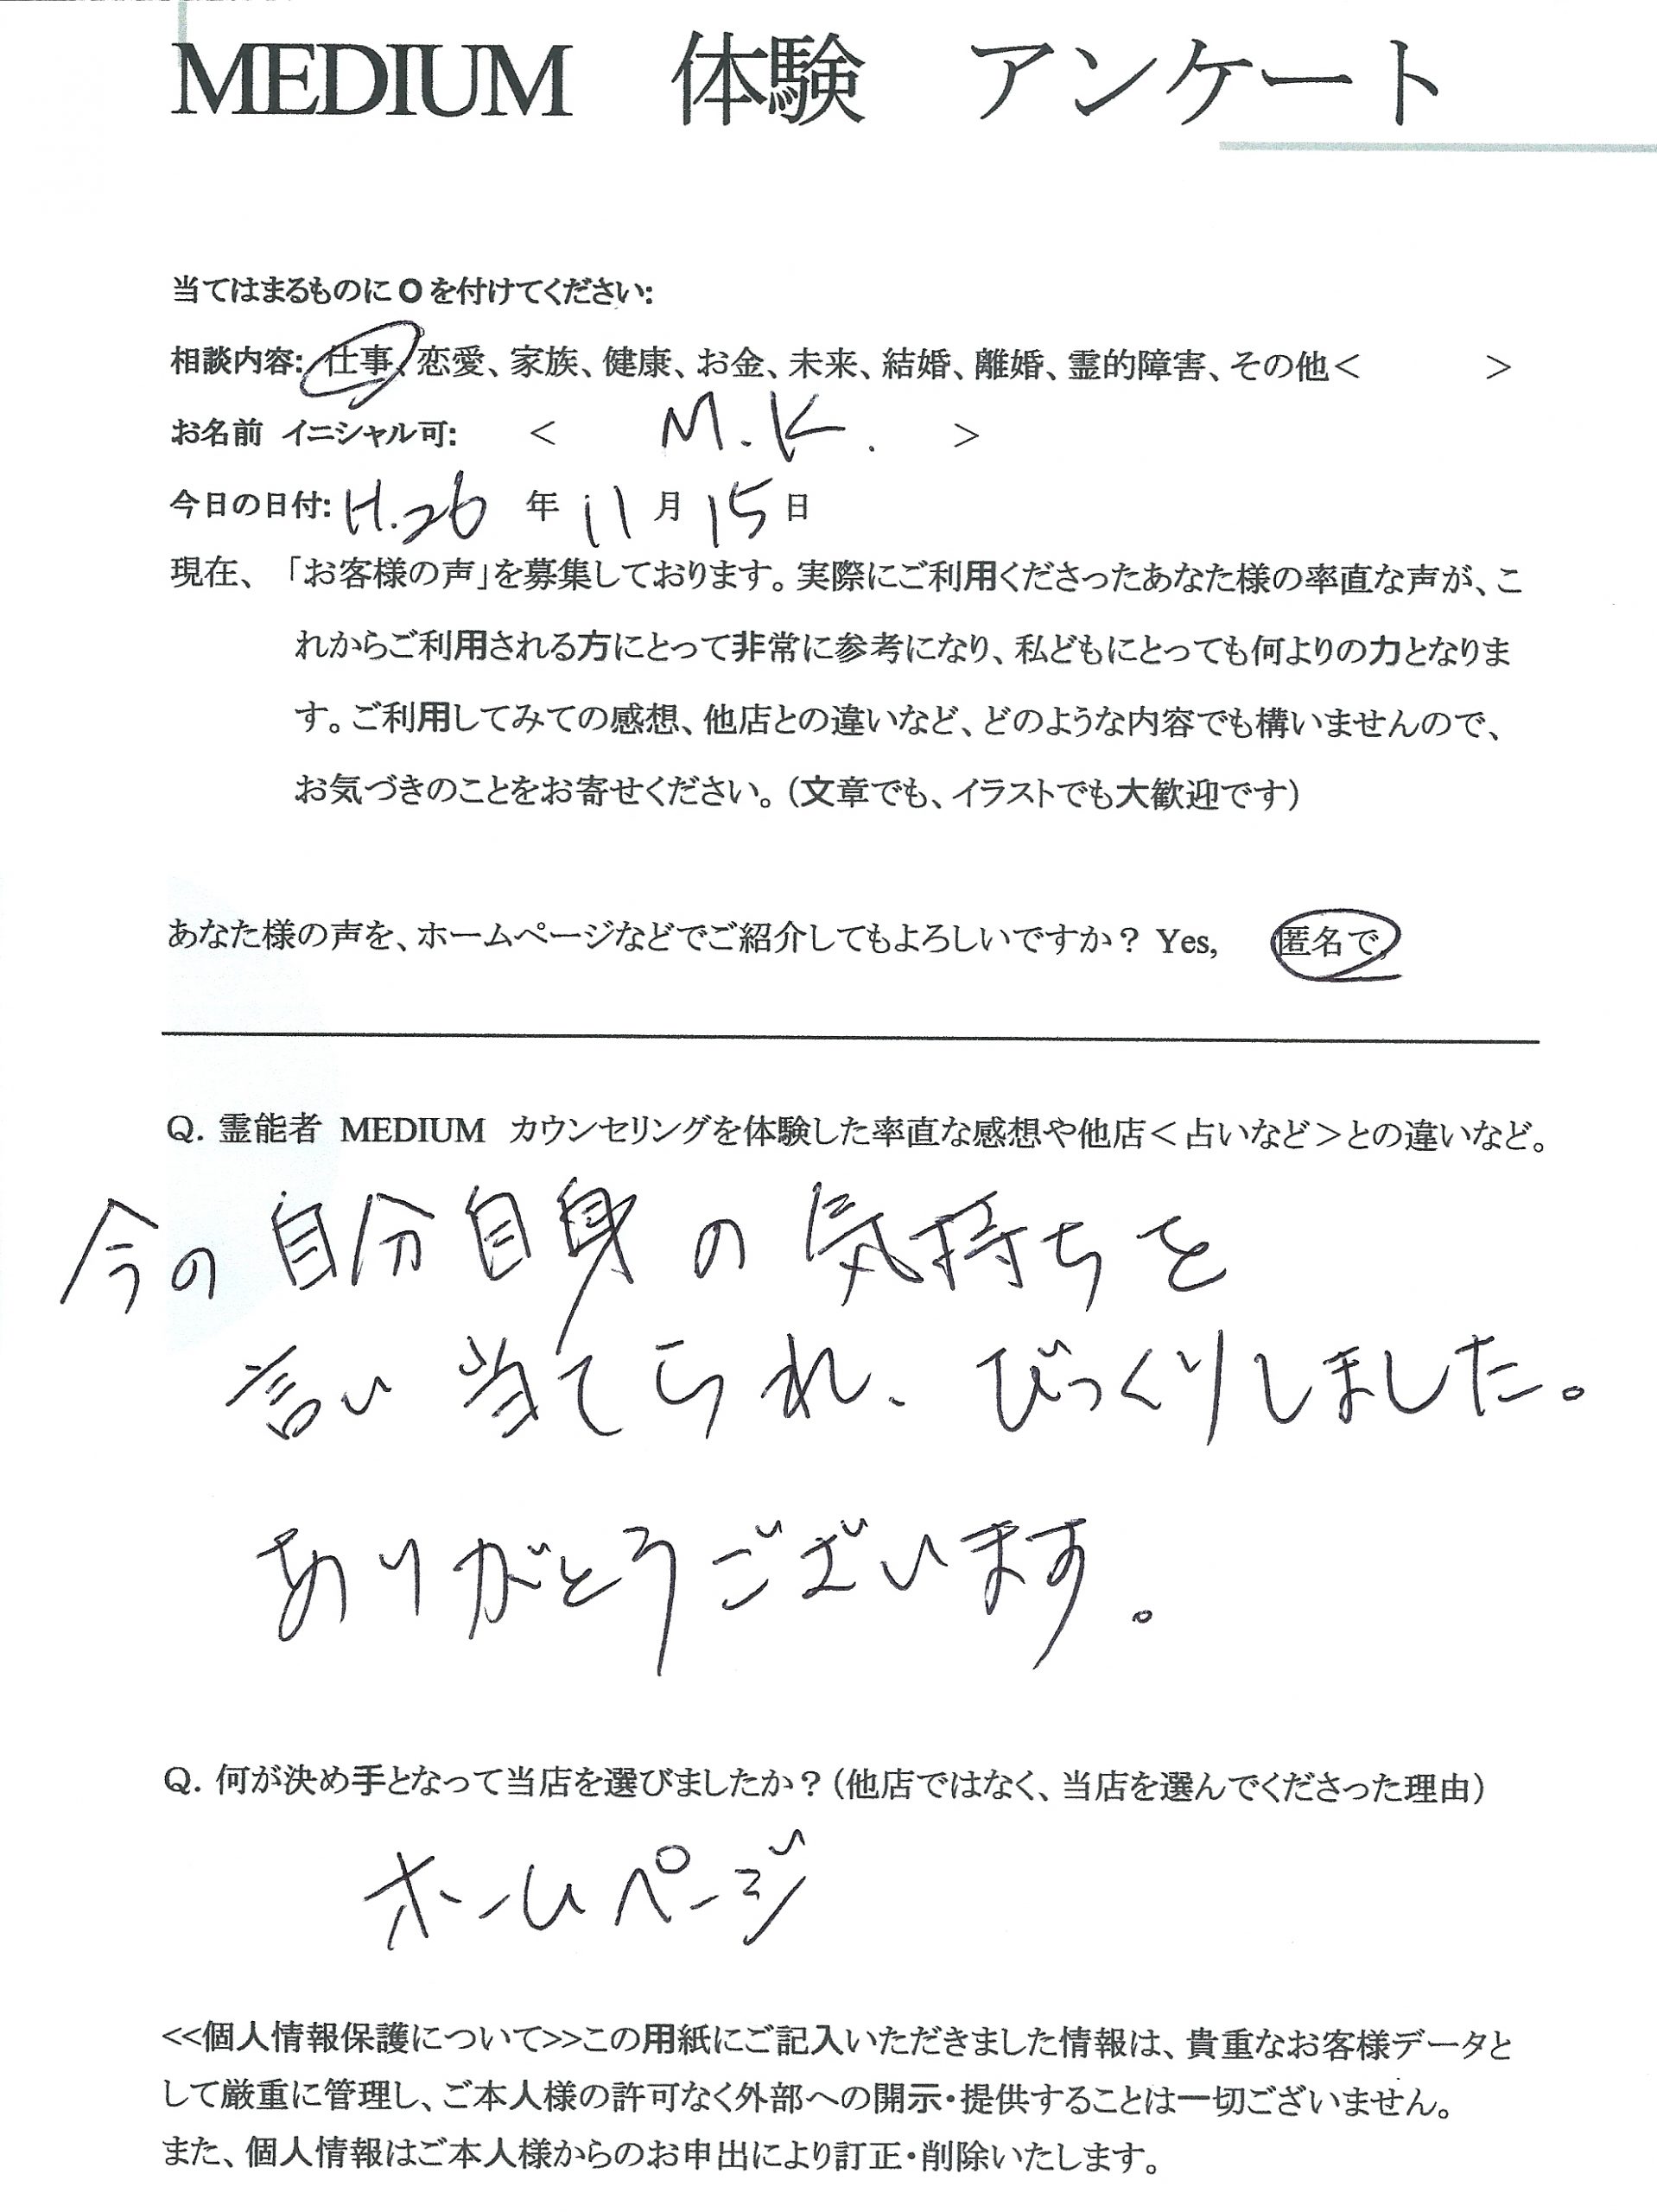 MEDIUM 体験 アンケート
当てはまるものにOを付けてください:
相談内容: 仕事、恋愛、家族、健康、お金、未来、結婚、離婚、霊的障害、その他< >
お名前 イニシャル可: < M.K. >
今日の日付: H.26 年 11 月 15 日
現在、「お客様の声」を募集しております。実際にご利用くださったあなた様の率直な声が、こ
れからご利用される方にとって非常に参考になり、私どもにとっても何よりの力となりま
す。ご利用してみての感想、他店との違いなど、どのような内容でも構いませんので、
お気づきのことをお寄せください。(文章でも、イラストでも大歓迎です)
あなた様の声を、ホームページなどでご紹介してもよろしいですか? Yes, 匿名で,
Q. 霊能者 MEDIUM カウンセリングを体験した率直な感想や他店<占いなど>との違いなど。
今の自分自身の気持ちを
言い当てられ、びっくりしました。
ありがとうございます。
Q. 何が決め手となって当店を選びましたか?(他店ではなく、当店を選んでくださった理由)
ホームページ
<<個人情報保護について>>この用紙にご記入いただきました情報は、貴重なお客様データと
して厳重に管理し、ご本人様の許可なく外部への開示・提供することは一切ございません。
また、個人情報はご本人様からのお申出により訂正・削除いたします。